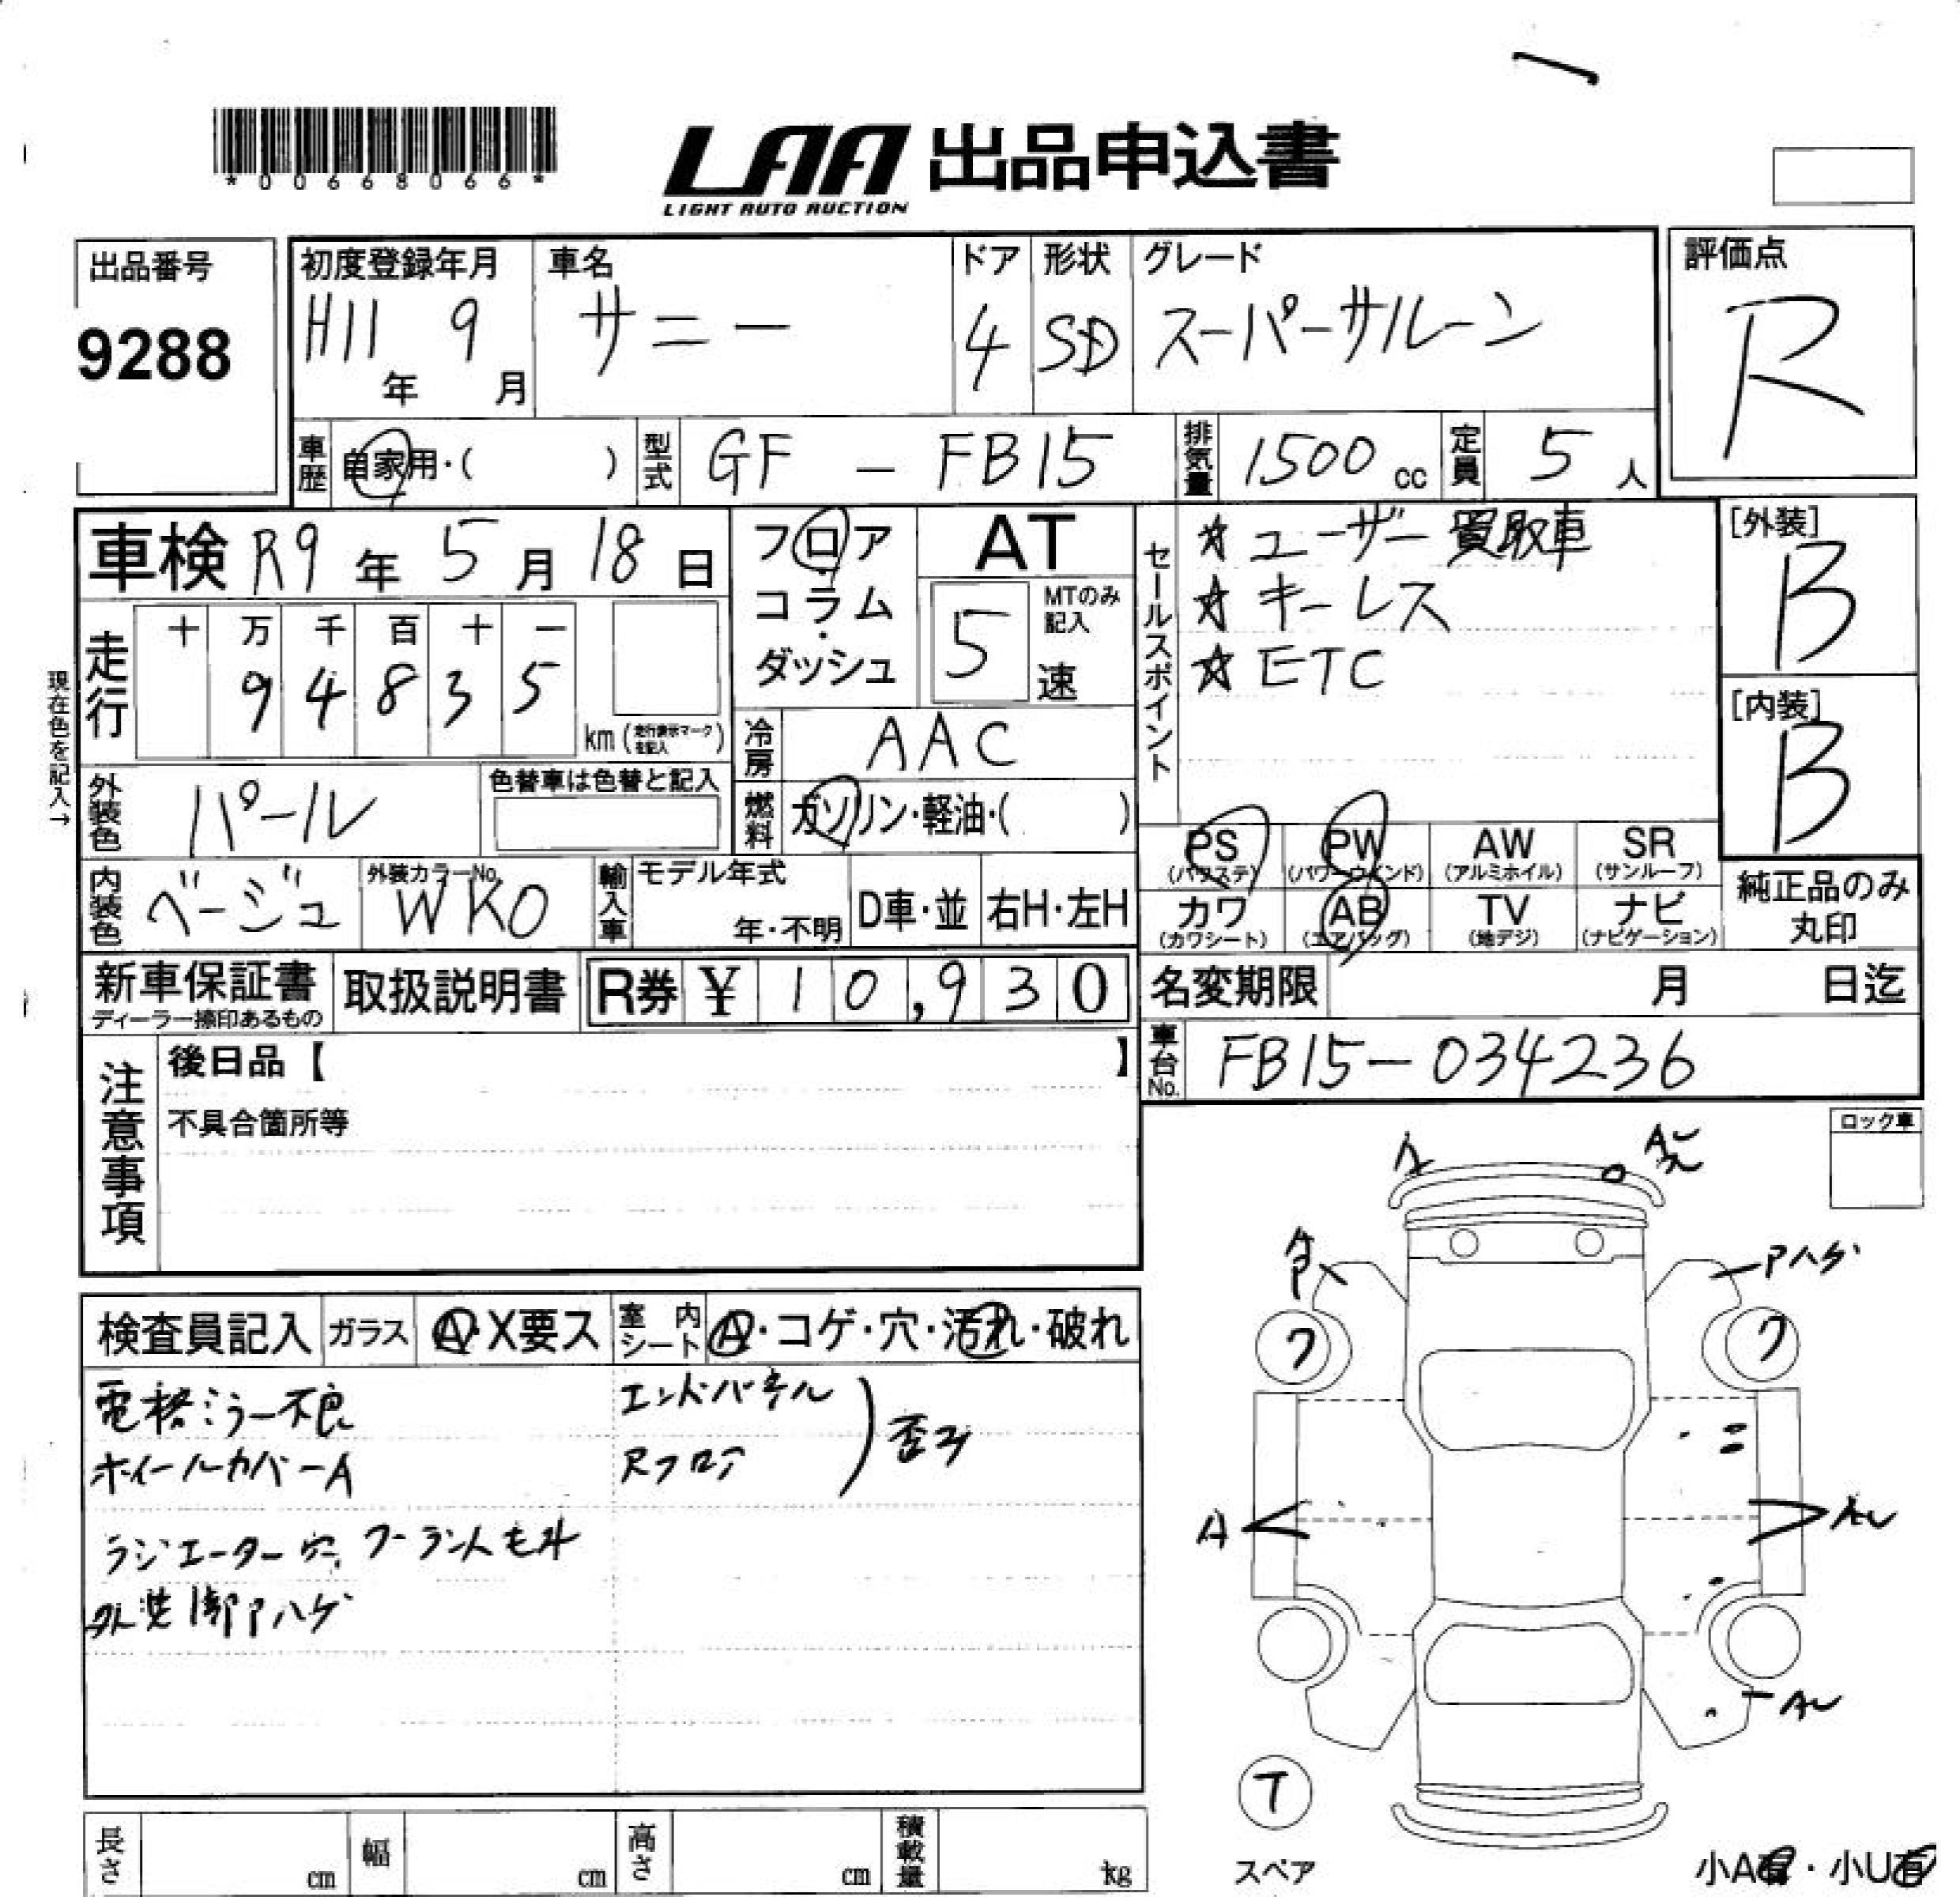 *00668066*
LAA 出品申込書
LIGHT AUTO AUCTION
出品番号
9288
初度登録年月
H11年 9月
車名
サニー
ドア
4
形状
SD
グレード
スーパーサルーン
評価点
R
車歴 自家用・( )
型式 GF - FB15
排気量 1500 cc
定員 5 人
車検 R9年 5月 18日
フロア・コラム・ダッシュ
AT
5 速
MTのみ記入
セールスポイント
☆ ユーザー買取車
☆ キーレス
☆ ETC
[外装]
B
[内装]
B
現在色を記入→
走行
十 万 千 百 十 一
9 4 8 3 5
km (走行表示マークを記入)
冷房 AAC
外装色 パール
色替車は色替と記入
燃料 ガソリン・軽油・( )
内装色 ベージュ
外装カラーNo. WK0
輸入車
モデル年式
年・不明
D車・並
右H・左H
PS (パワステ)
PW (パワーウインド)
AW (アルミホイル)
SR (サンルーフ)
カワ (カワシート)
AB (エアバッグ)
TV (地デジ)
ナビ (ナビゲーション)
純正品のみ丸印
新車保証書
ディーラー捺印あるもの
取扱説明書
R券 ¥ 10,930
名変期限 月 日迄
車台No. FB15-034236
注意事項
後日品【 】
不具合箇所等
ロック車
検査員記入
ガラス A・X要ス
室内シート A・コゲ・穴・汚れ・破れ
電格ミラー不良
ホイールカバーA
エンドパネル
Rフロア
歪み
ラジエーター穴、クーラントモレ
外装関Pハゲ
A
Pハゲ
ワ
ワ
A
AU
AU
T
スペア
長さ cm
幅 cm
高さ cm
積載量 kg
小A有・小U有